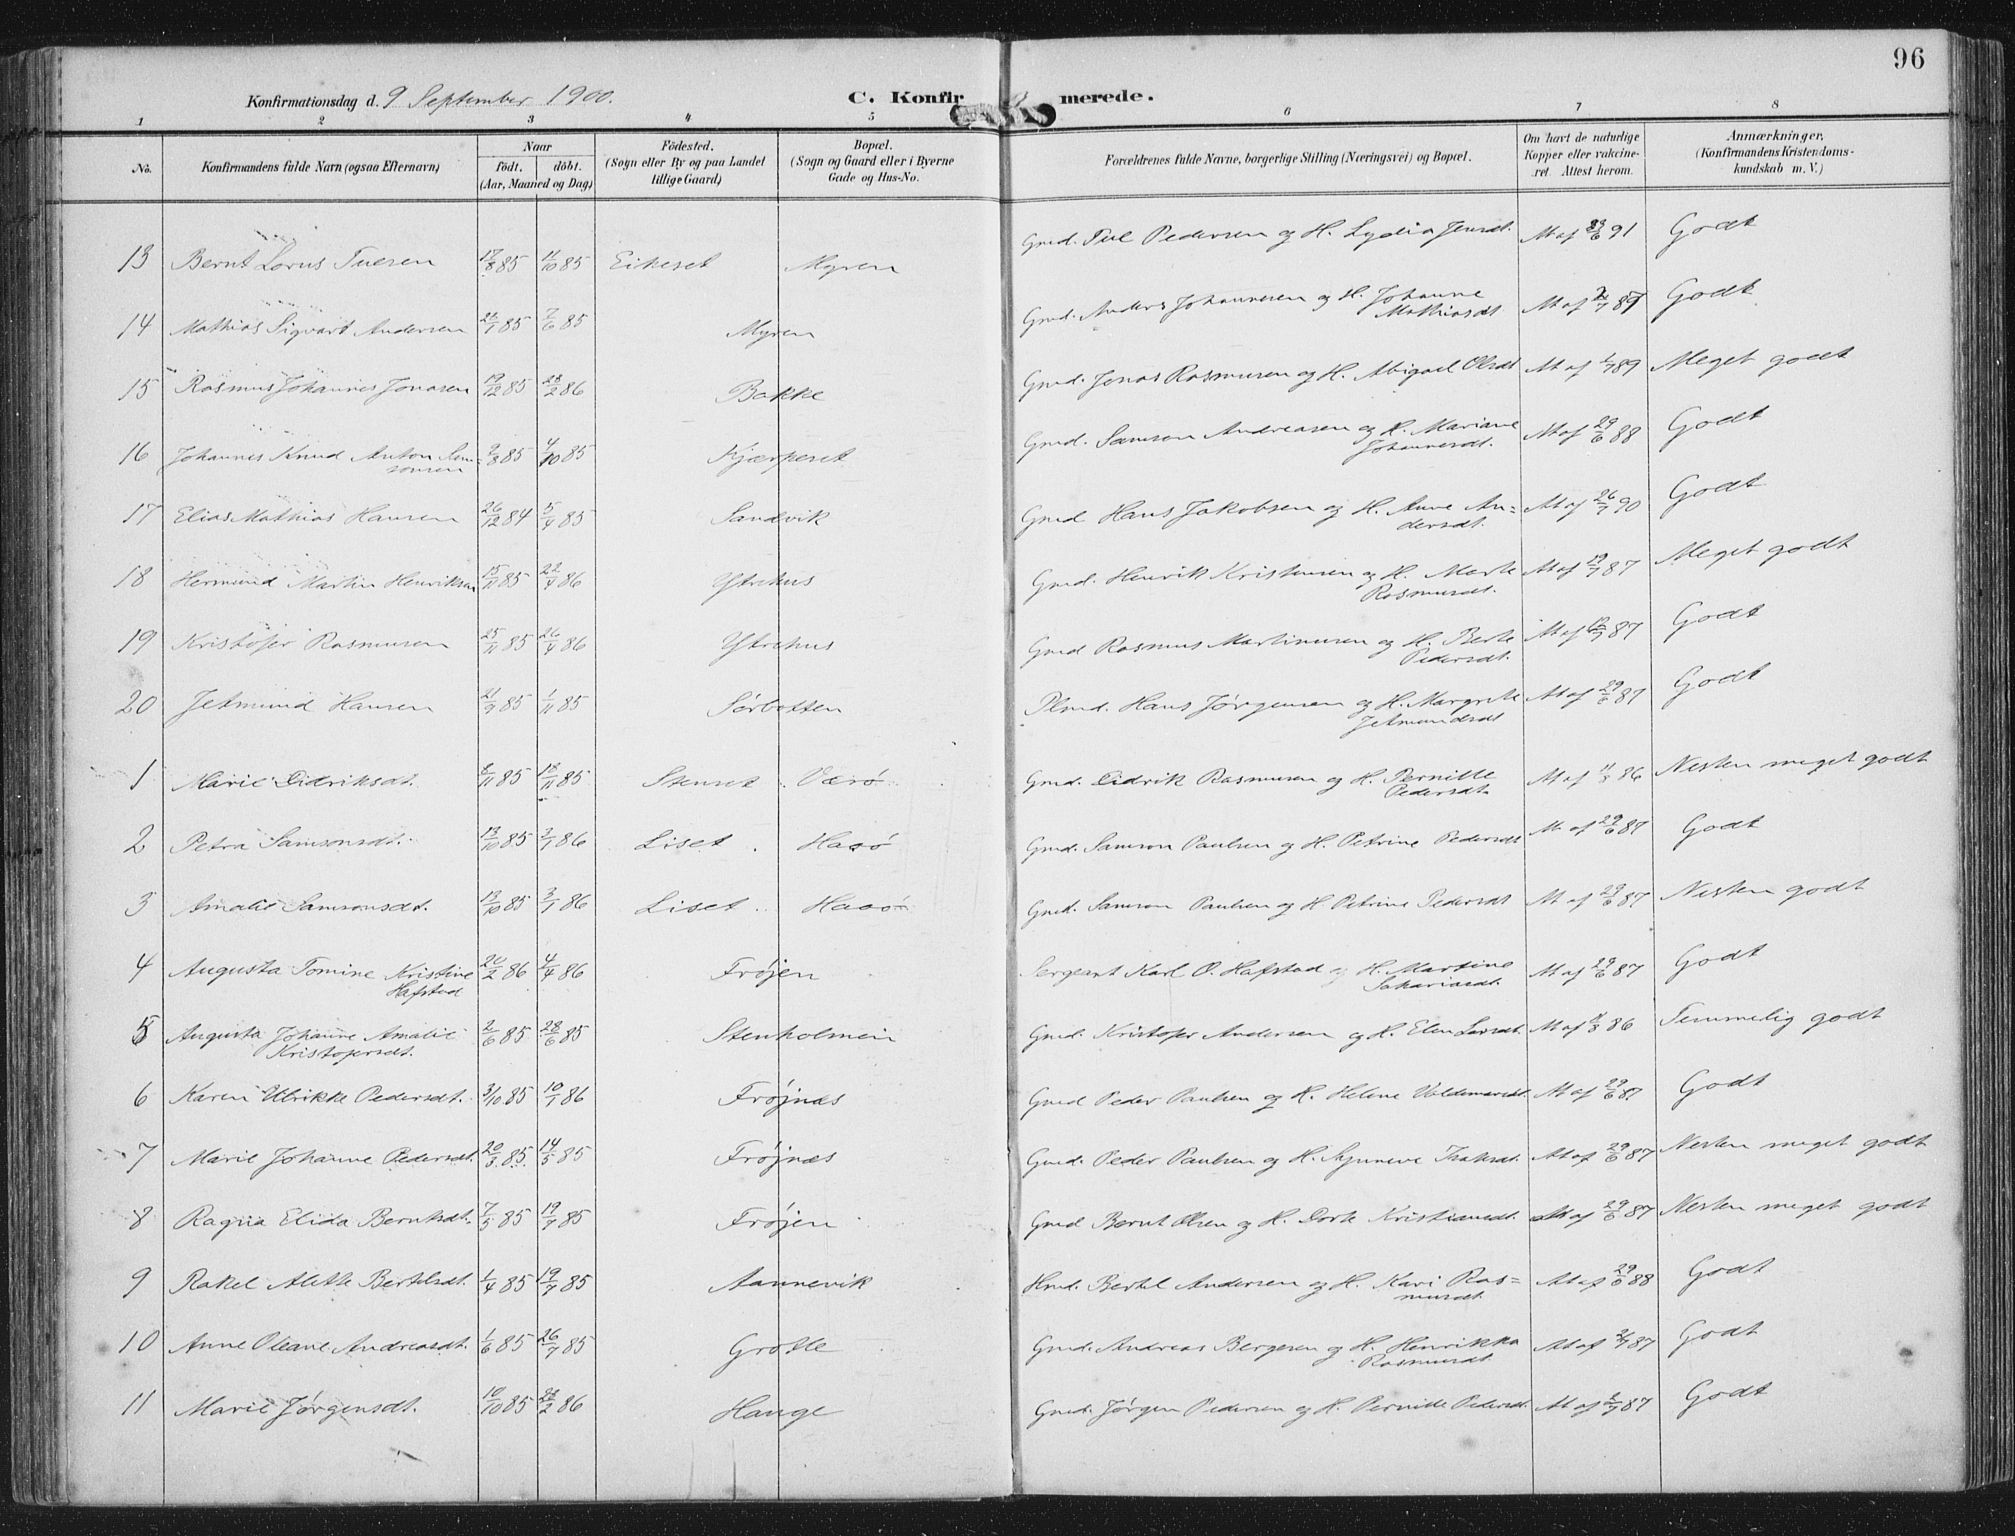 96
Konfirmationsdag d. 9 September 1900. C. Konfirmerede.
1 2 3 4 5 6 7 8
No. Konfirmandens fulde Navn (ogsaa Efternavn) Naar født. døbt. (Aar, Maaned og Dag) Fødested. (Sogn eller By og paa Landet tillige Gaard) Bopæl. (Sogn og Gaard eller i Byerne Gade og Hus-No. Forældrenes fulde Navne, borgerlige Stilling (Næringsvei) og Bopæl. Om havt de naturlige Kopper eller vakcineret. Attest herom. Anmærkninger. (Konfirmandens Kristendomskundskab m. V.)
13 Bernt Lorus Tuesen 17/8 85 11/10 85 Eikeset Myren Gmd. Tue Pedersen og H. Lydia Jensdt. At af 23/6 91 Godt
14 Mathias Sigvart Andersen 21/1 85 7/6 85 Myren Gmd. Anders Johannesen og H. Johanne Mathiasdt At af 89 Godt
15 Rasmus Johannes Jonasen 19/12 85 28/2 86 Bakke Gmd. Jonas Rasmusen og H. Abigael Olsdt At af 89 Meget godt
16 Johannes Knud Anton Samsonsen 9/8 85 4/10 85 Kjærpeset Gmd. Samson Andreasen og H. Mariane Johannesdt. At af 29/6 88 Godt
17 Elias Mathias Hansen 26/12 84 5/4 85 Sandvik Gmd Hans Jakobsen og H. Anne Andersdt. At af 26/7 90 Godt
18 Hermund Martin Henriksen 15/11 85 22/4 86 Ytrehus Gmd. Henrik Kristensen og H. Marte Rasmusdt. At af 19/7 87 Meget godt
19 Kristofer Rasmusen 25/11 85 26/4 86 Ytrehus Gmd Rasmus Martinusen og H. Berte Pedersdt. At af 87 Godt
20 Jetmund Hansen 21/9 85 1/11 85 Sørbotten Plmd. Hans Jørgensen og H. Margrete Jetmundsdt At af 29/6 87 Godt
1 Marie Didriksdt. 8/11 85 18/11 85 Stenset Værø Gmd. Didrik Rasmusen og H. Pernille Pedersdt. At af 11/8 86 Nesten meget godt
2 Petra Samsonsdt. 13/10 85 3/1 86 Liset Hasø Gmd. Samson Paulsen og H. Petrine Pedersdt At af 29/6 87 Godt
3 Amalie Samsonsdt. 13/10 85 3/1 86 Liset Hasø Gmd. Samson Paulsen og H. Petrine Pedersdt At af 29/6 87 Nesten godt
4 Augusta Tomine Kristine Hafstad 20/2 86 4/4 86 Frøjen Sergeant Karl O. Hafstad og H. Martine Sakariasdt. At af 29/6 87 Godt
5 Augusta Johanne Amalie Kristofersdt. 2/6 85 28/6 85 Stenholmen Gmd. Kristofer Andersen og H. Elen Larsdt. At af 86 Temmelig godt
6 Karen Ulrikke Pedersdt. 3/10 85 10/1 86 Frøjnæs Gmd Peder Paulsen og H. Helene Valdemarsdt. At af 29/6 87 Godt
7 Marie Johanne Pedersdt. 20/3 85 14/5 85 Frøjnæs Gmd. Peder Paulsen og H. Synneve Isaksdt. At af 29/6 87 Nesten meget godt
8 Ragna Elida Berntsdt. 7/5 85 19/7 85 Frøjen Gmd Bernt Olsen og H. Dorte Kristiansdt. At af 29/6 87 Nesten meget godt
9 Rakel Alette Bertelsdt. 1/4 85 19/7 85 Aannevik Hmd. Bertel Andersen og H. Kari Rasmusdt. At af 29/6 88 Godt
10 Anne Oleane Andreasdt. 1/6 85 26/7 85 Grotle Gmd. Andreas Bergesen og H. Henrikka Rasmusdt. At af 2/7 87 Godt
11 Marie Jørgensdt. 10/10 85 28/2 86 Hauge Gmd. Jørgen Pedersen og H. Pernille Pedersdt. At af 2/7 87 Godt